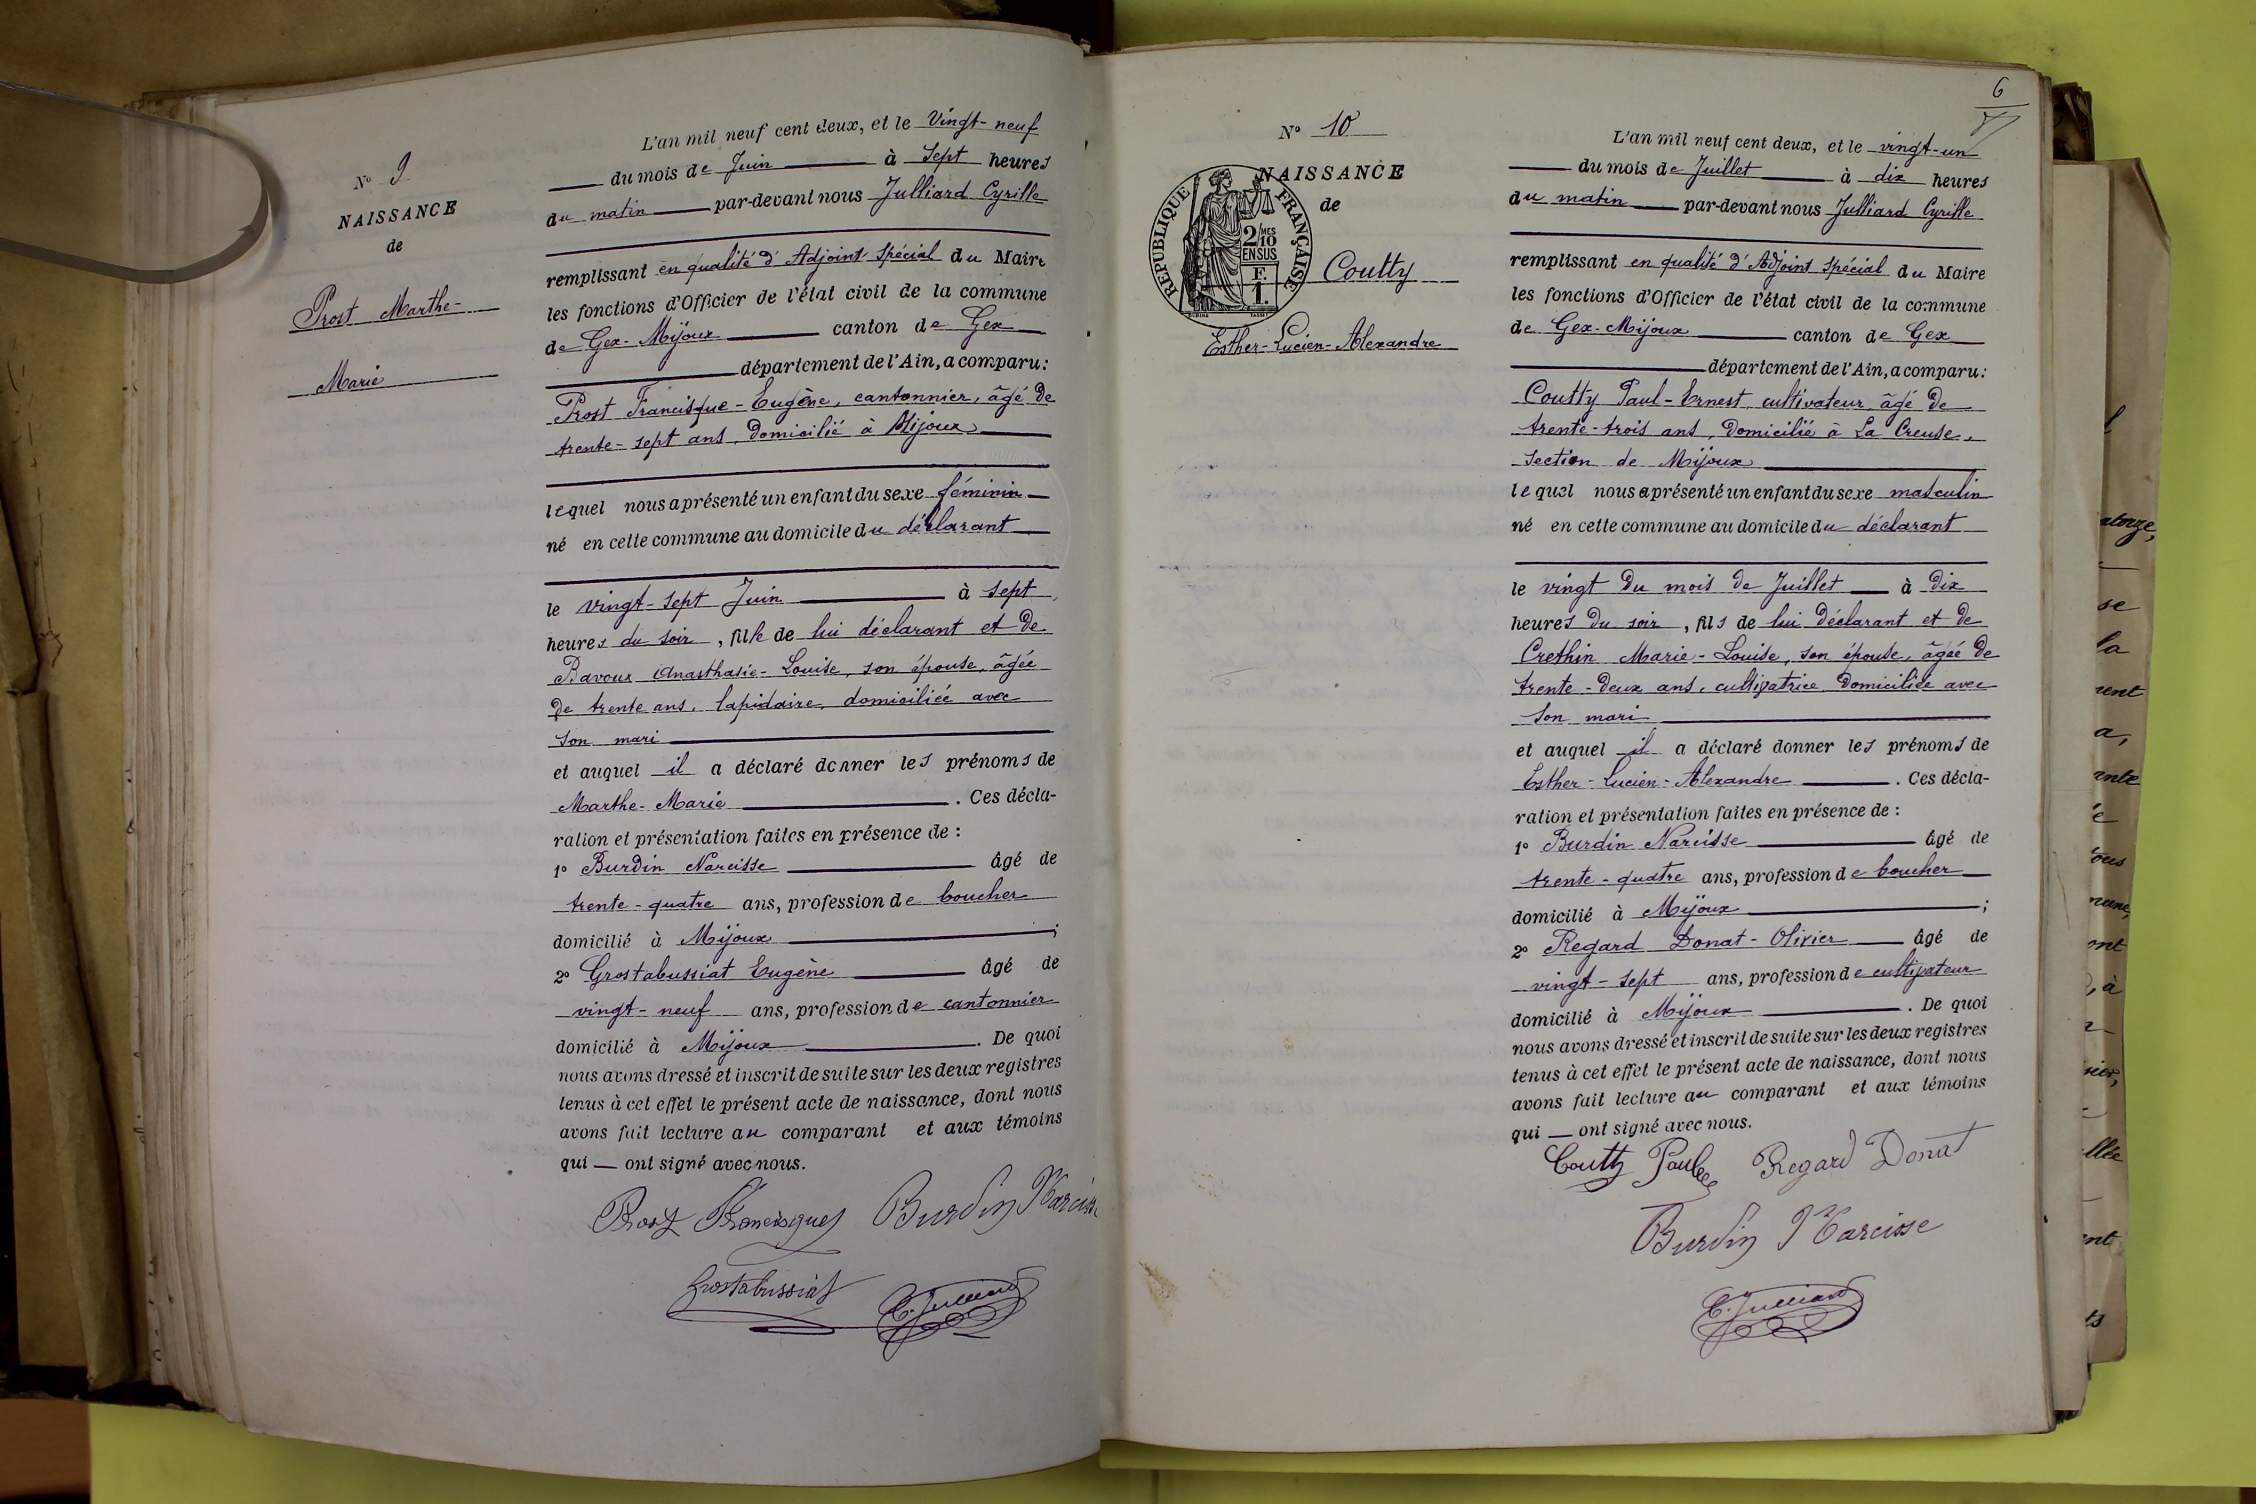 Nº 9
NAISSANCE
de
Prost Marthe-
Marie
L'an mil neuf cent deux, et le Vingt-neuf
du mois de Juin à sept heures
du matin par-devant nous Julliard Cyrille
remplissant en qualité d'Adjoint spécial du Maire
les fonctions d'Officier de l'état civil de la commune
de Gex-Mijoux canton de Gex
département de l'Ain, a comparu:
Prost Francisque-Eugène, cantonnier, âgé de
trente-sept ans, domicilié à Mijoux
lequel nous a présenté un enfant du sexe féminin
né en cette commune au domicile du déclarant
le vingt-sept Juin à sept
heures du soir, fille de lui déclarant et de
Bavoux Anasthasie-Louise, son épouse, âgée
de trente ans, lapidaire, domiciliée avec
son mari
et auquel il a déclaré donner les prénoms de
Marthe-Marie. Ces décla-
ration et présentation faites en présence de :
1º Burdin Narcisse âgé de
trente-quatre ans, profession de boucher
domicilié à Mijoux ;
2º Grostabussiat Eugène âgé de
vingt-neuf ans, profession de cantonnier
domicilié à Mijoux. De quoi
nous avons dressé et inscrit de suite sur les deux registres
tenus à cet effet le présent acte de naissance, dont nous
avons fait lecture au comparant et aux témoins
qui ont signé avec nous.
Prost Francisque Burdin Narcisse
Grostabussiat C. Julliard
6
Nº 10
NAISSANCE
de
REPUBLIQUE FRANÇAISE
2/10 MES
EN SUS
F.
1.
Coutty
Esther-Lucien-Alexandre
L'an mil neuf cent deux, et le vingt-un
du mois de Juillet à dix heures
du matin par-devant nous Julliard Cyrille
remplissant en qualité d'Adjoint spécial du Maire
les fonctions d'Officier de l'état civil de la commune
de Gex-Mijoux canton de Gex
département de l'Ain, a comparu:
Coutty Paul-Ernest, cultivateur, âgé de
trente-trois ans, domicilié à La Creuse,
section de Mijoux
lequel nous a présenté un enfant du sexe masculin
né en cette commune au domicile du déclarant
le vingt du mois de Juillet à dix
heures du soir, fils de lui déclarant et de
Crethin Marie-Louise, son épouse, âgée de
trente-deux ans, cultivatrice, domiciliée avec
son mari
et auquel il a déclaré donner les prénoms de
Esther-Lucien-Alexandre. Ces décla-
ration et présentation faites en présence de :
1º Burdin Narcisse âgé de
trente-quatre ans, profession de boucher
domicilié à Mijoux ;
2º Regard Donat-Olivier âgé de
vingt-sept ans, profession de cultivateur
domicilié à Mijoux. De quoi
nous avons dressé et inscrit de suite sur les deux registres
tenus à cet effet le présent acte de naissance, dont nous
avons fait lecture au comparant et aux témoins
qui ont signé avec nous.
Coutty Paul Regard Donat
Burdin Narcisse
C. Julliard